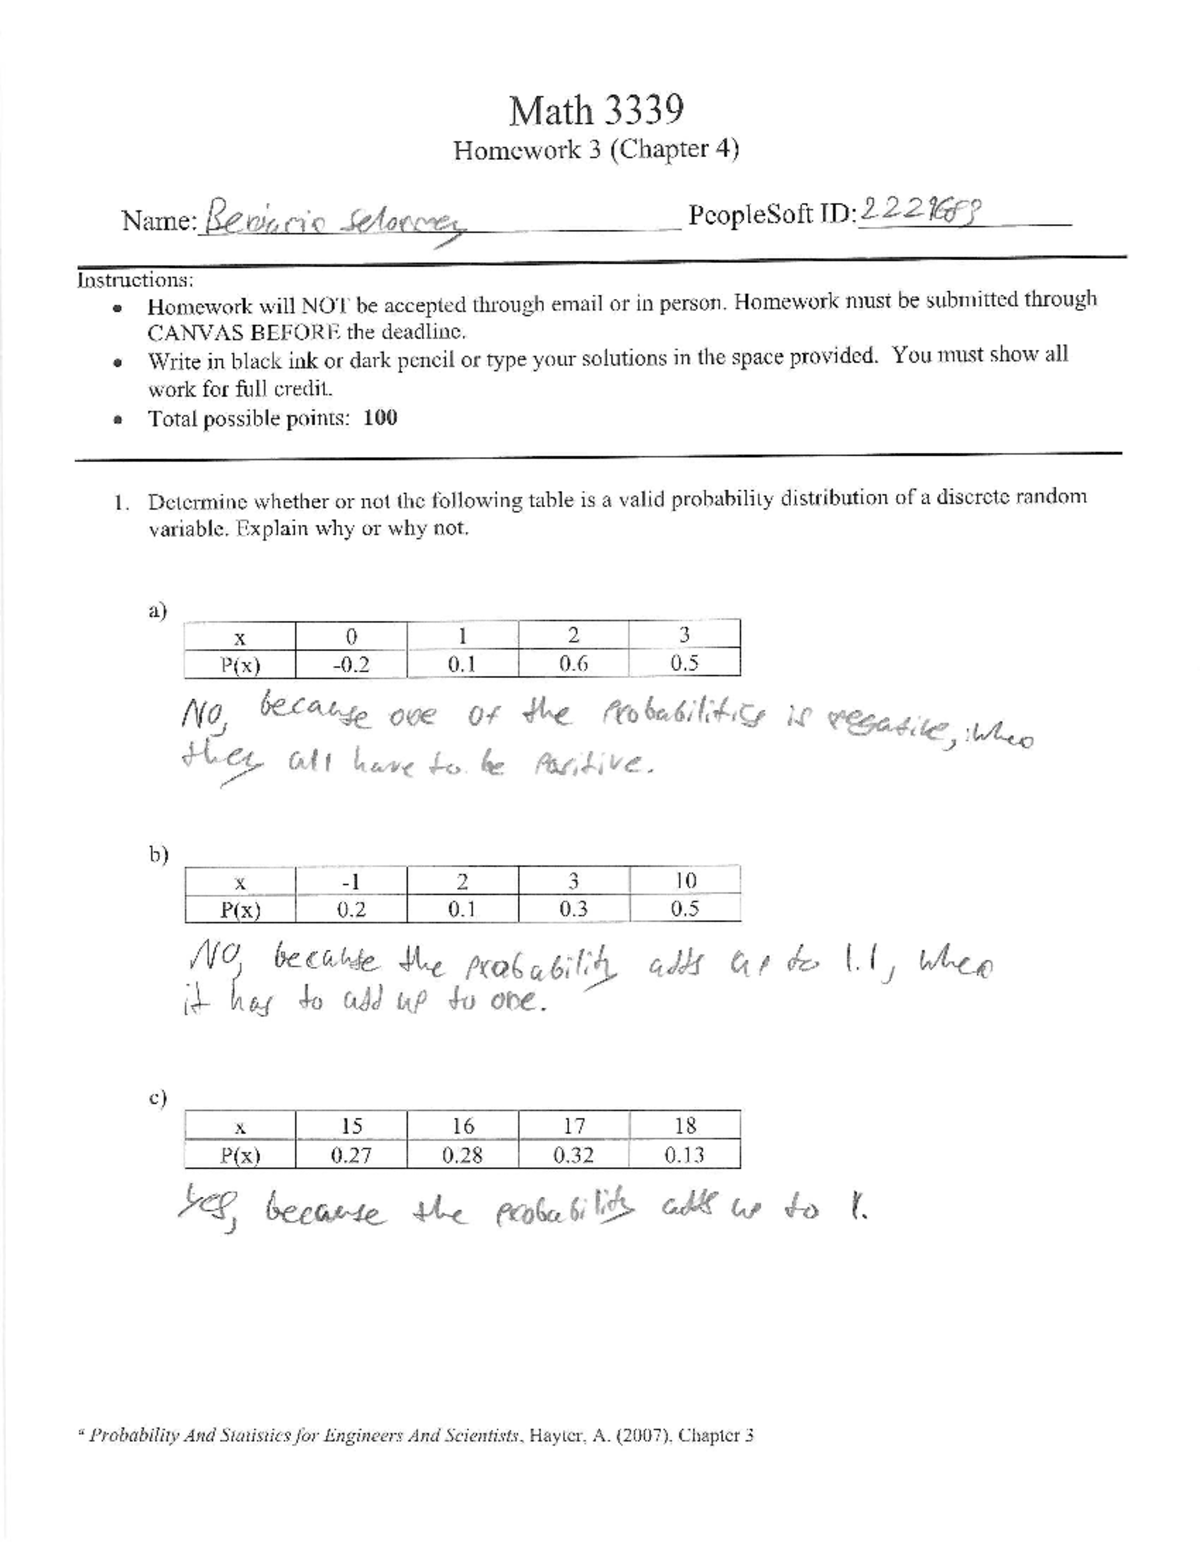 Math 3339
Homework 3 (Chapter 4)
Name: PeopleSoft ID:
Instructions:
• Homework will NOT be accepted through email or in person. Homework must be submitted through
CANVAS BEFORE the deadline.
• Write in black ink or dark pencil or type your solutions in the space provided. You must show all
work for full credit.
• Total possible points: 100
1. Determine whether or not the following table is a valid probability distribution of a discrete random
variable. Explain why or why not.
a)
x 0 1 2 3
P(x) -0.2 0.1 0.6 0.5
No, because one of the probabilities is negative, when
they all have to be positive.
b)
x -1 2 3 10
P(x) 0.2 0.1 0.3 0.5
NO, because the probability adds up to 1.1, when
it has to add up to one.
c)
x 15 16 17 18
P(x) 0.27 0.28 0.32 0.13
Yes, because the probability adds up to 1.
" Probability And Statistics for Engineers And Scientists, Hayter, A. (2007), Chapter 3